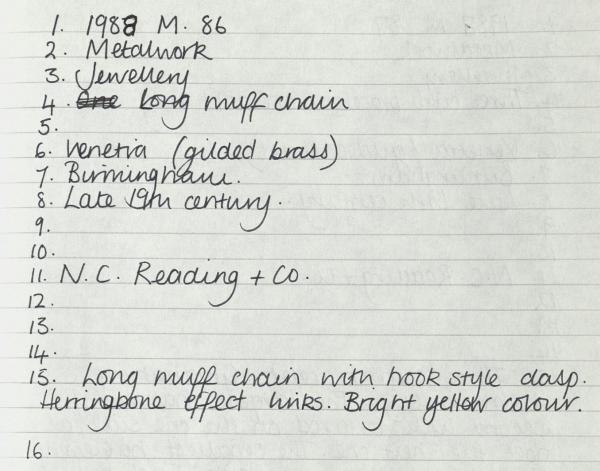 1. 1988 M. 86
2. Metalwork
3. Jewellery
4. One Long muff chain
5.
6. Venetia (gilded brass)
7. Birmingham.
8. Late 19th century.
9.
10.
11. N.C. Reading + Co.
12.
13.
14.
15. Long muff chain with hook style clasp.
Herringbone effect links. Bright yellow colour.
16.